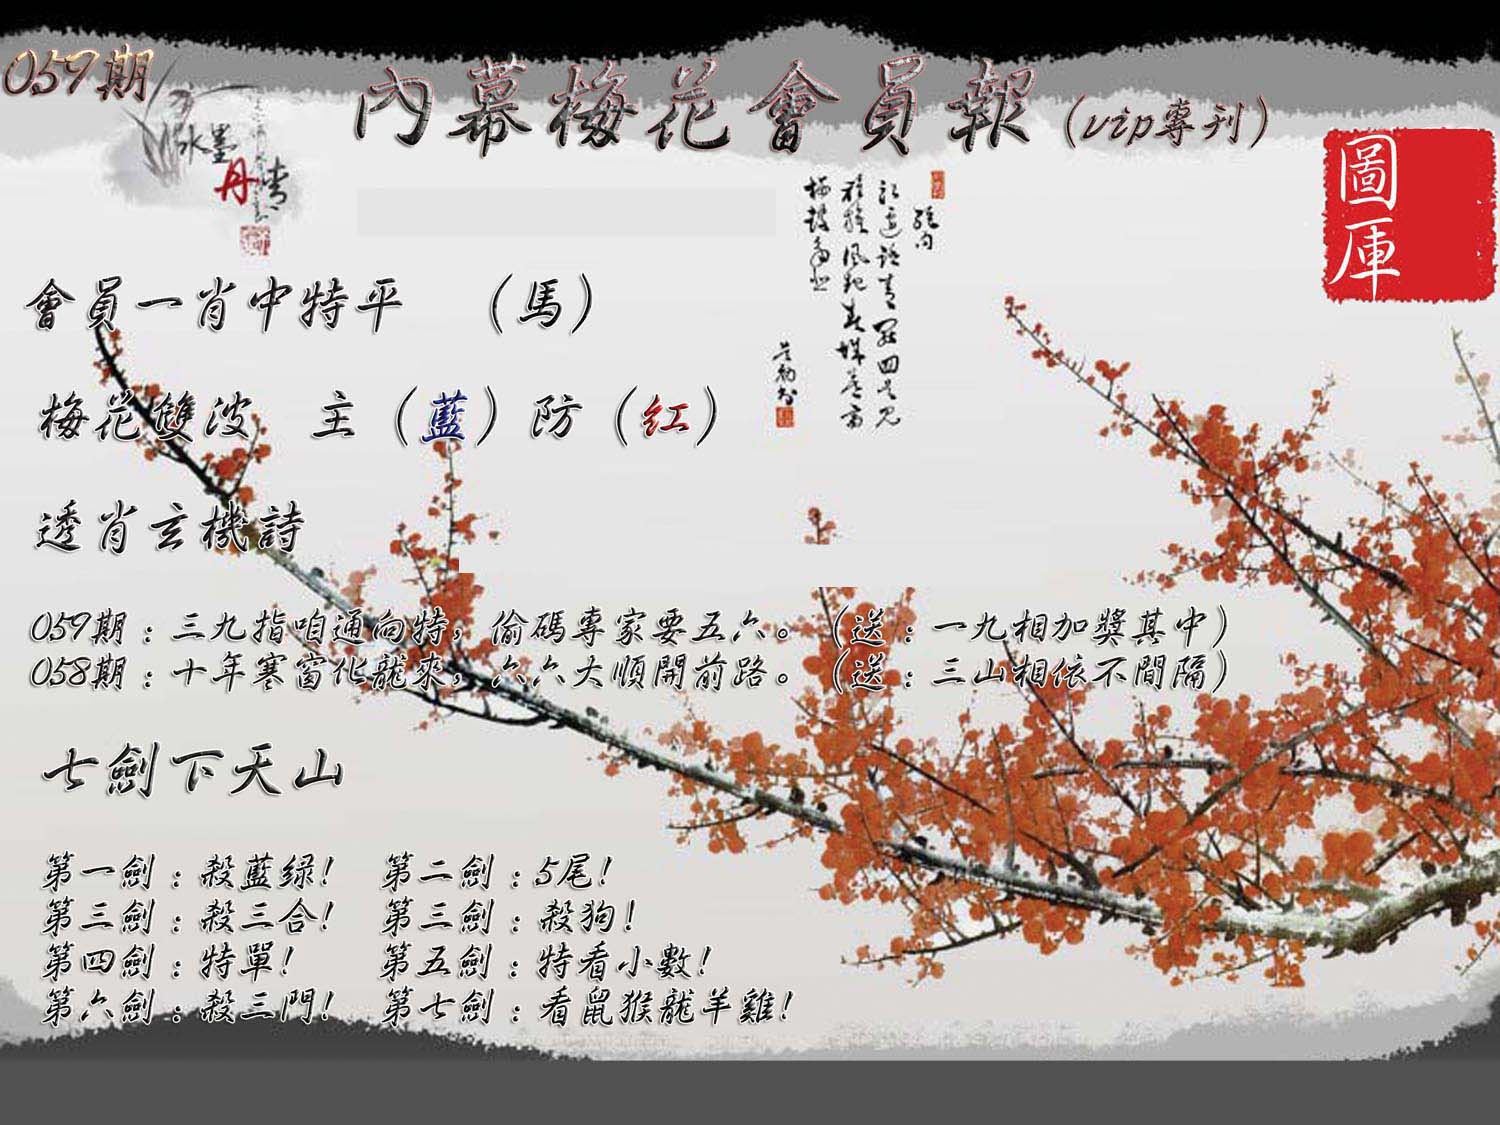 059期
內幕梅花會員報（vip專刊）
水墨
丹青
圖庫
會員一肖中特平　（馬）
梅花雙波　主（藍）防（红）
透肖玄機詩
059期：三九指咱通向特，偷碼專家要五六。（送：一九相加獎其中）
058期：十年寒窗化龍來，六六大順開前路。（送：三山相依不間隔）
七劍下天山
第一劍：殺藍绿！　第二劍：5尾！
第三劍：殺三合！　第三劍：殺狗！
第四劍：特單！　第五劍：特看小數！
第六劍：殺三門！　第七劍：看鼠猴龍羊雞！